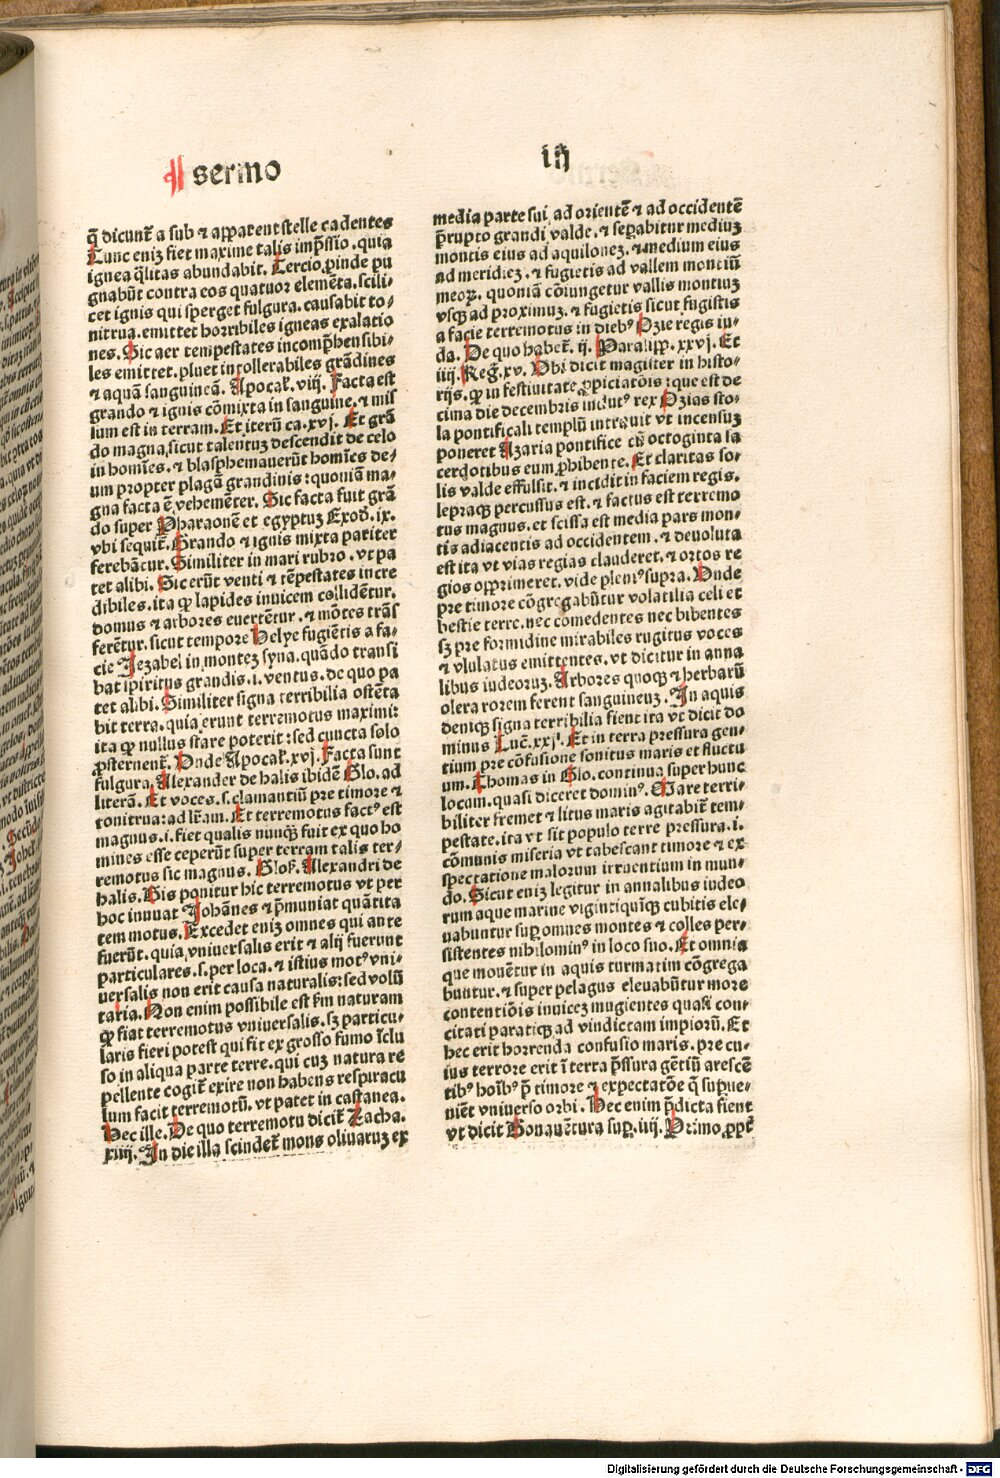 sermo
iij
q̄ dicunt̄ a sub ⁊ apparent stelle cadentes
Tunc enīȝ fiet maxime talis imp̄ssio . quia
ignea q̄litas abundabit. Tercio ꝓinde pu
gnabūt contra eos quatuor elemēta. scili⸗
cet ignis qui sperget fulgura. causabit to⸗
nitrua. emittet horribiles igneas exalatio
nes. Sic aer tempestates incomp̄hensibi⸗
les emittet. pluet intollerabiles grādines
⁊ aquā sanguineā. Apocaꝉ. viij. Facta est
grando ⁊ ignis cōmixta in sanguine. ⁊ mis
sum est in terram. Et iterū ca. xvj. Et grā
do magna sicut talentuȝ descendit de celo
in homīes. ⁊ blasphemauerūt homīes de⸗
um propter plagā grandinis : quoniā ma⸗
gna facta ē vehemēter. Sic facta fuit grā
do super Pharaonē et egyptuȝ Exoď. ix.
vbi sequit̄. Grando ⁊ ignis mixta pariter
ferebāтur. Similiter in mari rubro . vt pa
tet alibi. Sic erūt venti ⁊ tēpestates incre
dibiles. ita ꝙ lapides inuicem collidētur.
domus ⁊ arbores euertētur . ⁊ mōtes trās
ferētur. sicut tempore Helye fugiētis a fa⸗
cie Jezabel in monteȝ syna. quādo transi
bat spiritus grandis .i. ventus. de quo pa
tet alibi. Similiter signa terribilia ostēta
bit terra. quia erunt terremotus maximi:
ita ꝙ nullus stare poterit : sed cuncta solo
ꝓsternent̄. Vnde Apocaꝉ. xvj. Facta sunt
fulgura. Alexander de halis ibidē Glo. ad
literā. Et voces .s. clamantiū pre timore ⁊
tonitrua: ad lr̄am. Et terremotus fact⁹ est
magnus .i. fiet qualis nunq̄ȝ fuit ex quo ho
mines esse ceperūt super terram talis ter⸗
remotus sic magnus. Gloß. Alexandri de
halis. Bis ponitur hic terremotus vt per
hoc innuat Johānes ⁊ p̄muniat quātita
tem motus. Excedet enīȝ omnes qui ante
fuerūt. quia vniuersalis erit ⁊ alij fuerunt
particulares .s. per loca. ⁊ istius mot⁹ vni⸗
uersalis non erit causa naturalis: sed volū
taria. Non enim possibile est ẜm naturam
ꝙ fiat terremotus vniuersalis. sȝ particu⸗
laris fieri potest qui fit ex grosso fumo īclu
so in aliqua parte terre. qui cuȝ natura re
pellente cogit̄ exire non habens respiracu
lum facit terremotū. vt patet in castanea.
Hec ille. De quo terremotu dicit̄ Zacha.
xiiij. In die illa scindet̄ mons oliuaruȝ ex
media parte sui ad orientē ⁊ ad occidentē
p̄rupto grandi valde. ⁊ sepabitur mediuȝ
montis eius ad aquilonez. ⁊ medium eius
ad meridiez. ⁊ fugietis ad vallem montiū
meoꝝ. quoniā cōiungetur vallis montiuȝ
vsqȝ ad proximuȝ. ⁊ fugietis sicut fugistis
a facie terremotus in dieb⁹ Ozie regis iu⸗
da. De quo habet̄. ij. Paralipp. xxvj. Et
iiij. Reg̃. xv. Vbi dicit magister in histo⸗
rijs. ꝙ in festiuitate ꝓpiciatōis : que est de
cima die decembris indut⁹ rex Ozias sto⸗
la pontificali templū intrauit vt incensuȝ
poneret Azaria pontifice cū octoginta sa
cerdotibus eum ꝓhibente. Et claritas so⸗
lis valde effulsit. ⁊ incidit in faciem regis.
lepraqȝ percussus est. ⁊ factus est terremo
tus magnus. et scissa est media pars mon⸗
tis adiacentis ad occidentem. ⁊ deuoluta
est ita vt vias regias clauderet. ⁊ ortos re
gios opprimeret. vide pleni⁹ supra. Vnde
pre timore cōgregabūtur volatilia celi et
bestie terre. nec comedentes nec bibentes
sȝ pre formidine mirabiles rugitus voces
⁊ vlulatus emittentes. vt dicitur in anna
libus iudeoruȝ. Arbores quoqȝ ⁊ herbarū
olera rorem ferent sanguineuȝ. In aquis
deniqȝ signa terribilia fient ita vt dicit do
minus Luc̄. xxj'. Et in terra pressura gen⸗
tium pre cōfusione sonitus maris et fluctu
um. Thomas in Glo. continua super hunc
locam. quasi diceret domin⁹. Mare terri⸗
biliter fremet ⁊ litus maris agitabit̄ tem⸗
pestate. ita vt sit populo terre pressura .i.
cōmunis miseria vt tabescant timore ⁊ ex
spectatione malorum irruentium in mun⸗
do. Sicut enīȝ legitur in annalibus iudeo
rum aque marine vigintiquīqȝ cubitis ele⸗
uabuntur sup omnes montes ⁊ colles per⸗
sistentes nihilomin⁹ in loco suo. Et omnia
que mouētur in aquis turmatim cōgrega
buntur. ⁊ super pelagus eleuabūtur more
contentiōis inuicez mugientes quasi con⸗
citati paratiqȝ ad vindictam impiorū. Et
hec erit horrenda confusio maris. pre cu⸗
ius terrore erit ī terra p̄ssura gētiū arescē
tib⁹ hoīb⁹ p̄ timore ⁊ expectatōe q̄ supue⸗
niēt vniuerso orbi. Hec enim p̄dicta fient
vt dicit Bonauētura sup. iiij. Primo ꝓpt̄
Digitalisierung gefördert durch die Deutsche Forschungsgemeinschaft - DFG